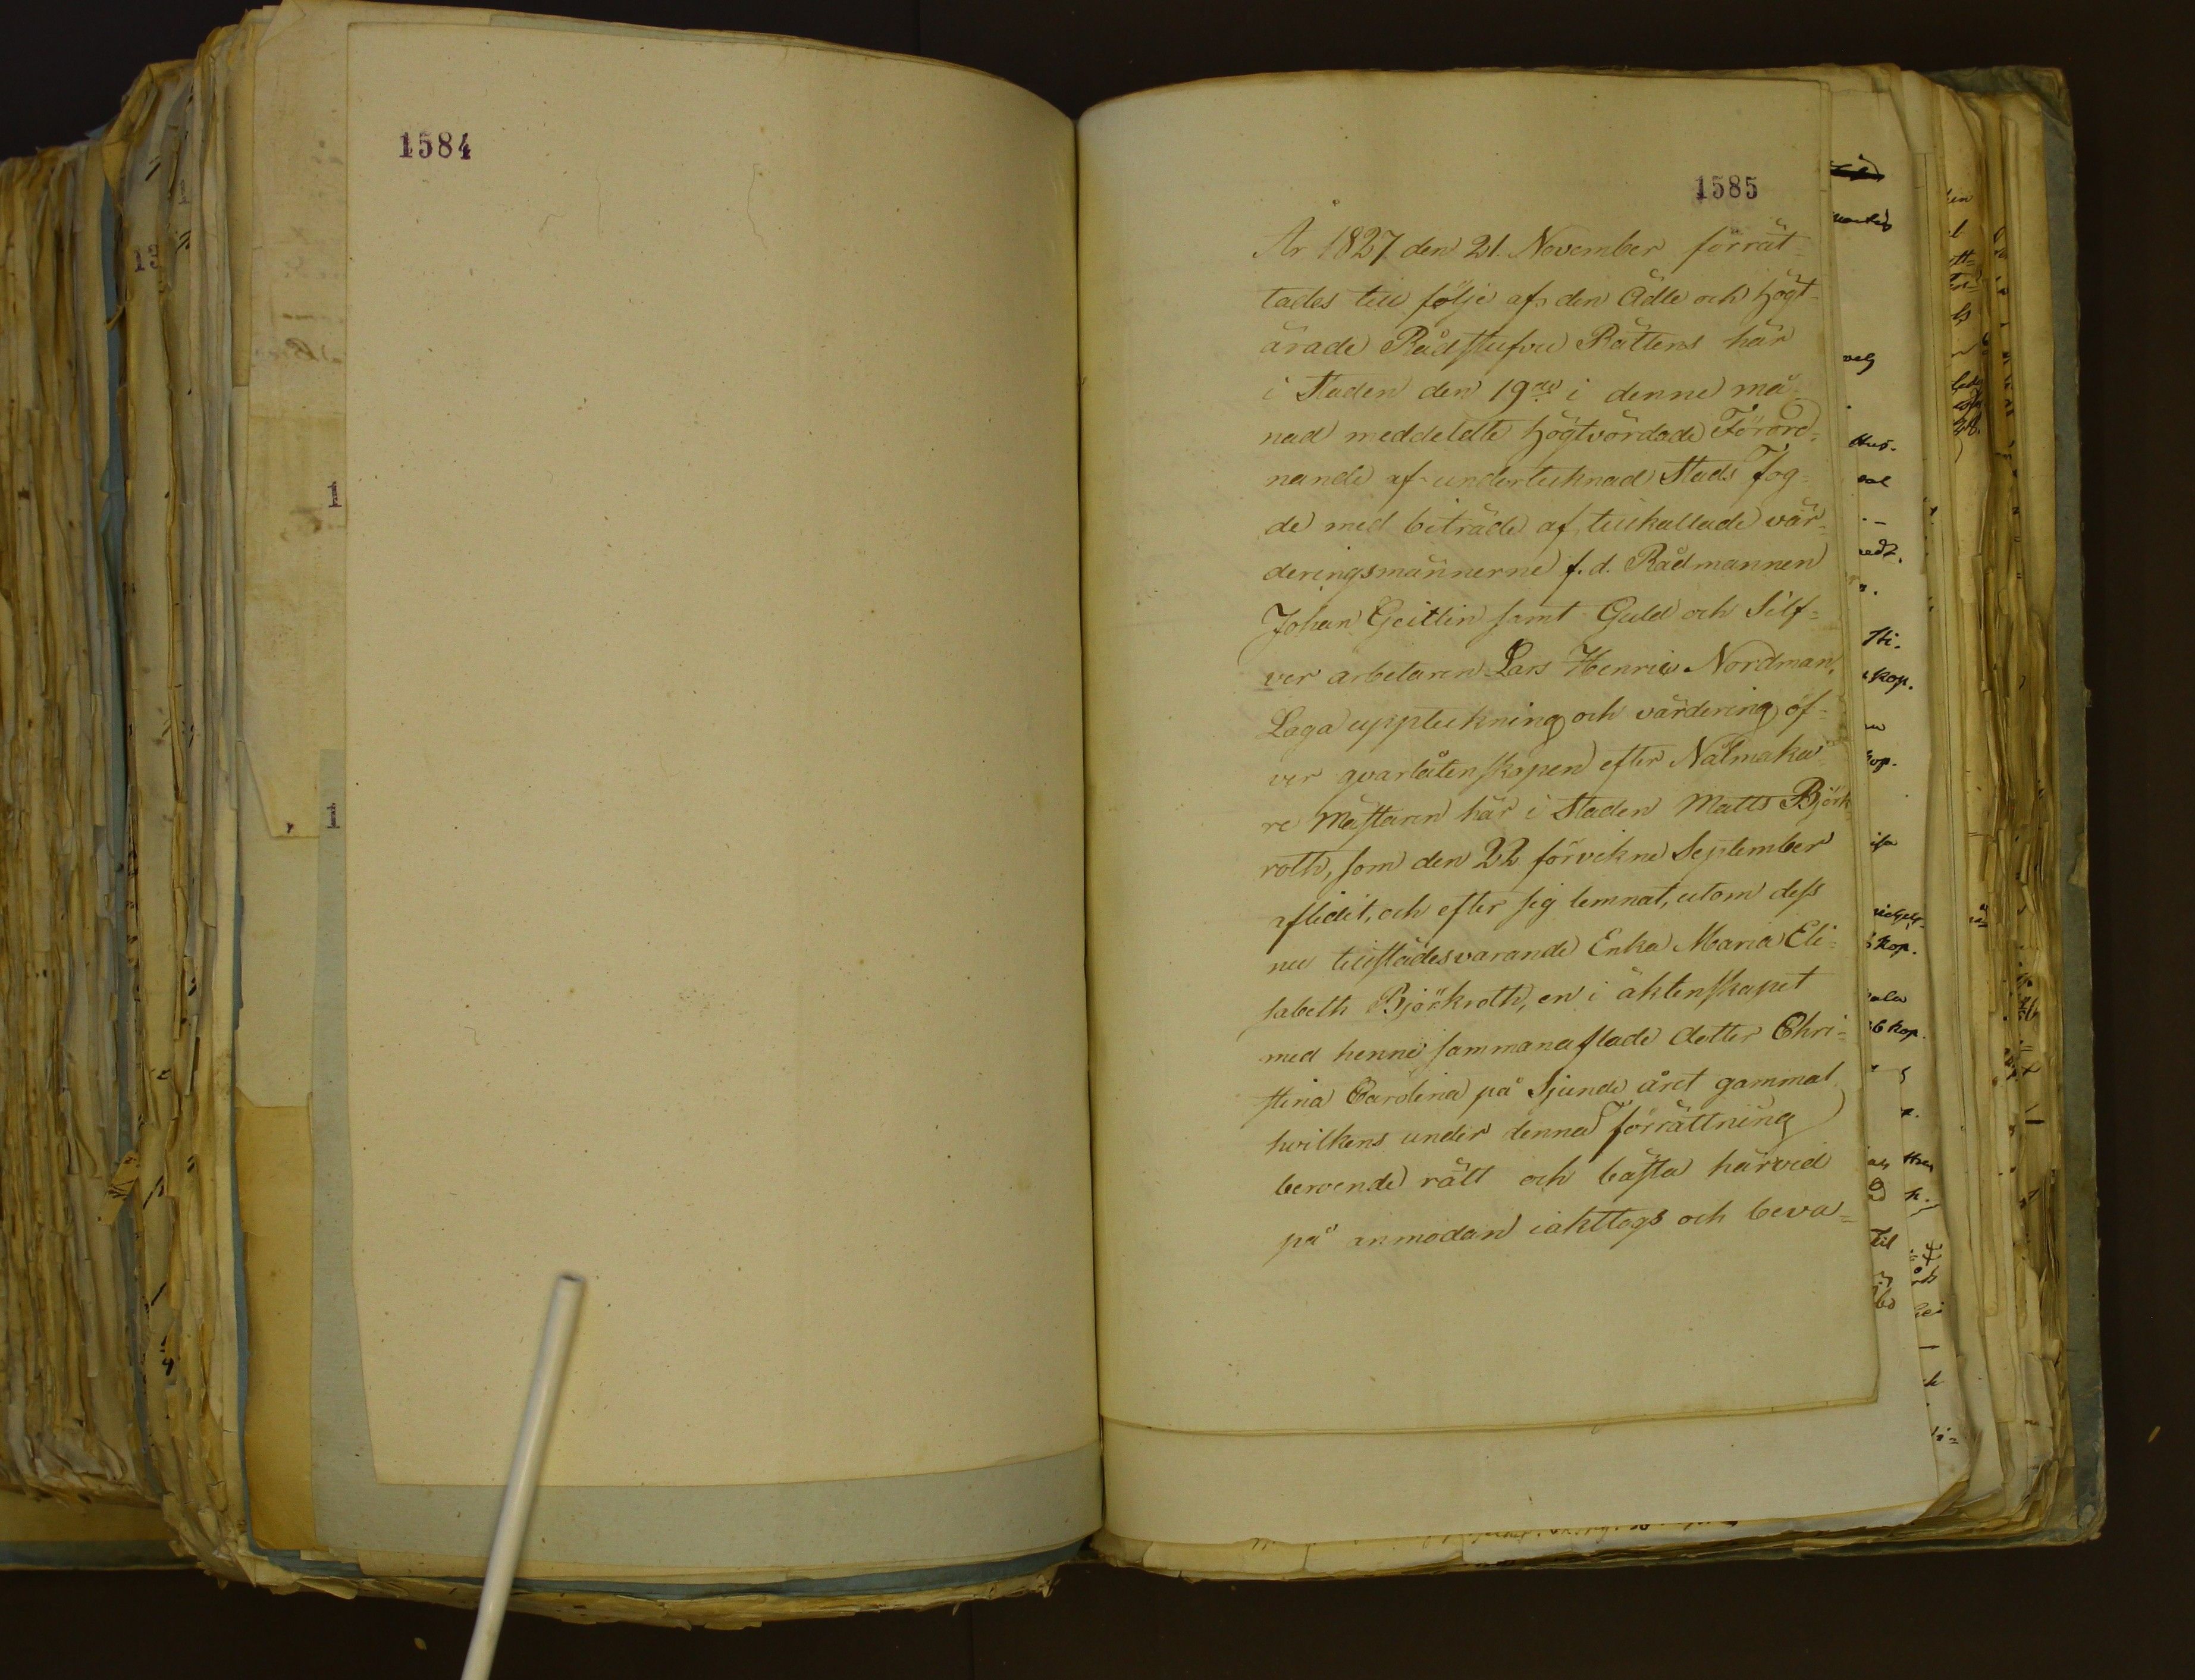 1584
1585
År 1827 den 21. November förrät-
tades till följe af den Ädle och Högt-
ärade Rådstufvu Rättens här
i Staden den 19de i denne må-
nad meddeldte högtvördade Förord-
nande af undertecknad Stads Fog-
de med biträde af tillkallade vär-
deringsmännerne f. d. Rådmannen
Johan Geitlin samt Guld och Silf-
ver arbetaren Lars Henric Nordman,
Laga uppteckning och värdering öf-
ver qvarlåtenskapen efter Nålmaka-
re Mästaren här i Staden Matts Björk
roth, som den 22 förvekne September
aflidit, och efter sig lemnat, utom dess
nu tillstädesvarande Enka Maria Eli-
sabeth Björkroth, en i äktenskapet
med henne sammanaflade dotter Chri-
stina Carolina på Sjunde året gammal
hvilkens under denna förrättning
beroende rätt och bästa härvid
på anmodan iakttogs och beva-